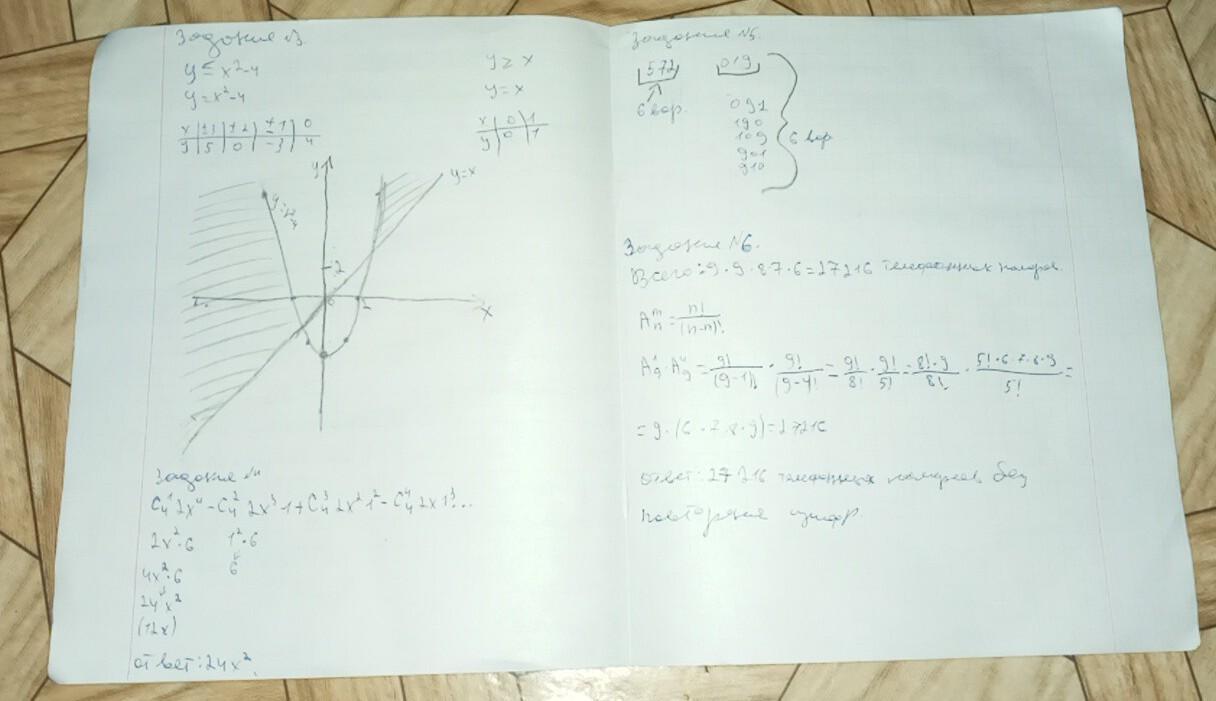 Задание №3.
y ≤ x²-4
y = x²-4
x | ±3 | ±2 | ±1 | 0
y | 5 | 0 | -3 | 4
y ≥ x
y = x
x | 0 | 1
y | 0 | 1
y
y=x
2
0
2
x
Задание №4
C₄¹ 2x⁴ - C₄² 2x³·1 + C₄³ 2x² 1² - C₄⁴ 2x 1³...
2x²·6 1²·6
6
4x²·6
24x²
(12x)
ответ: 24x².
Задание №5.
572 019
6 вар.
091
190
109
901
910
6 вар
Задание №6.
Всего: 9·9·8·7·6=27216 телефонных номеров.
Aₙᵐ = n!/(n-m)!
A₉¹·A₉⁴ = 9!/(9-1)! · 9!/(9-4)! = 9!/8! · 9!/5! = 8!·9/8! · 5!·6·7·8·9/5! =
= 9·(6·7·8·9)=27216
ответ: 27216 телефонных номеров без
повторения цифр.